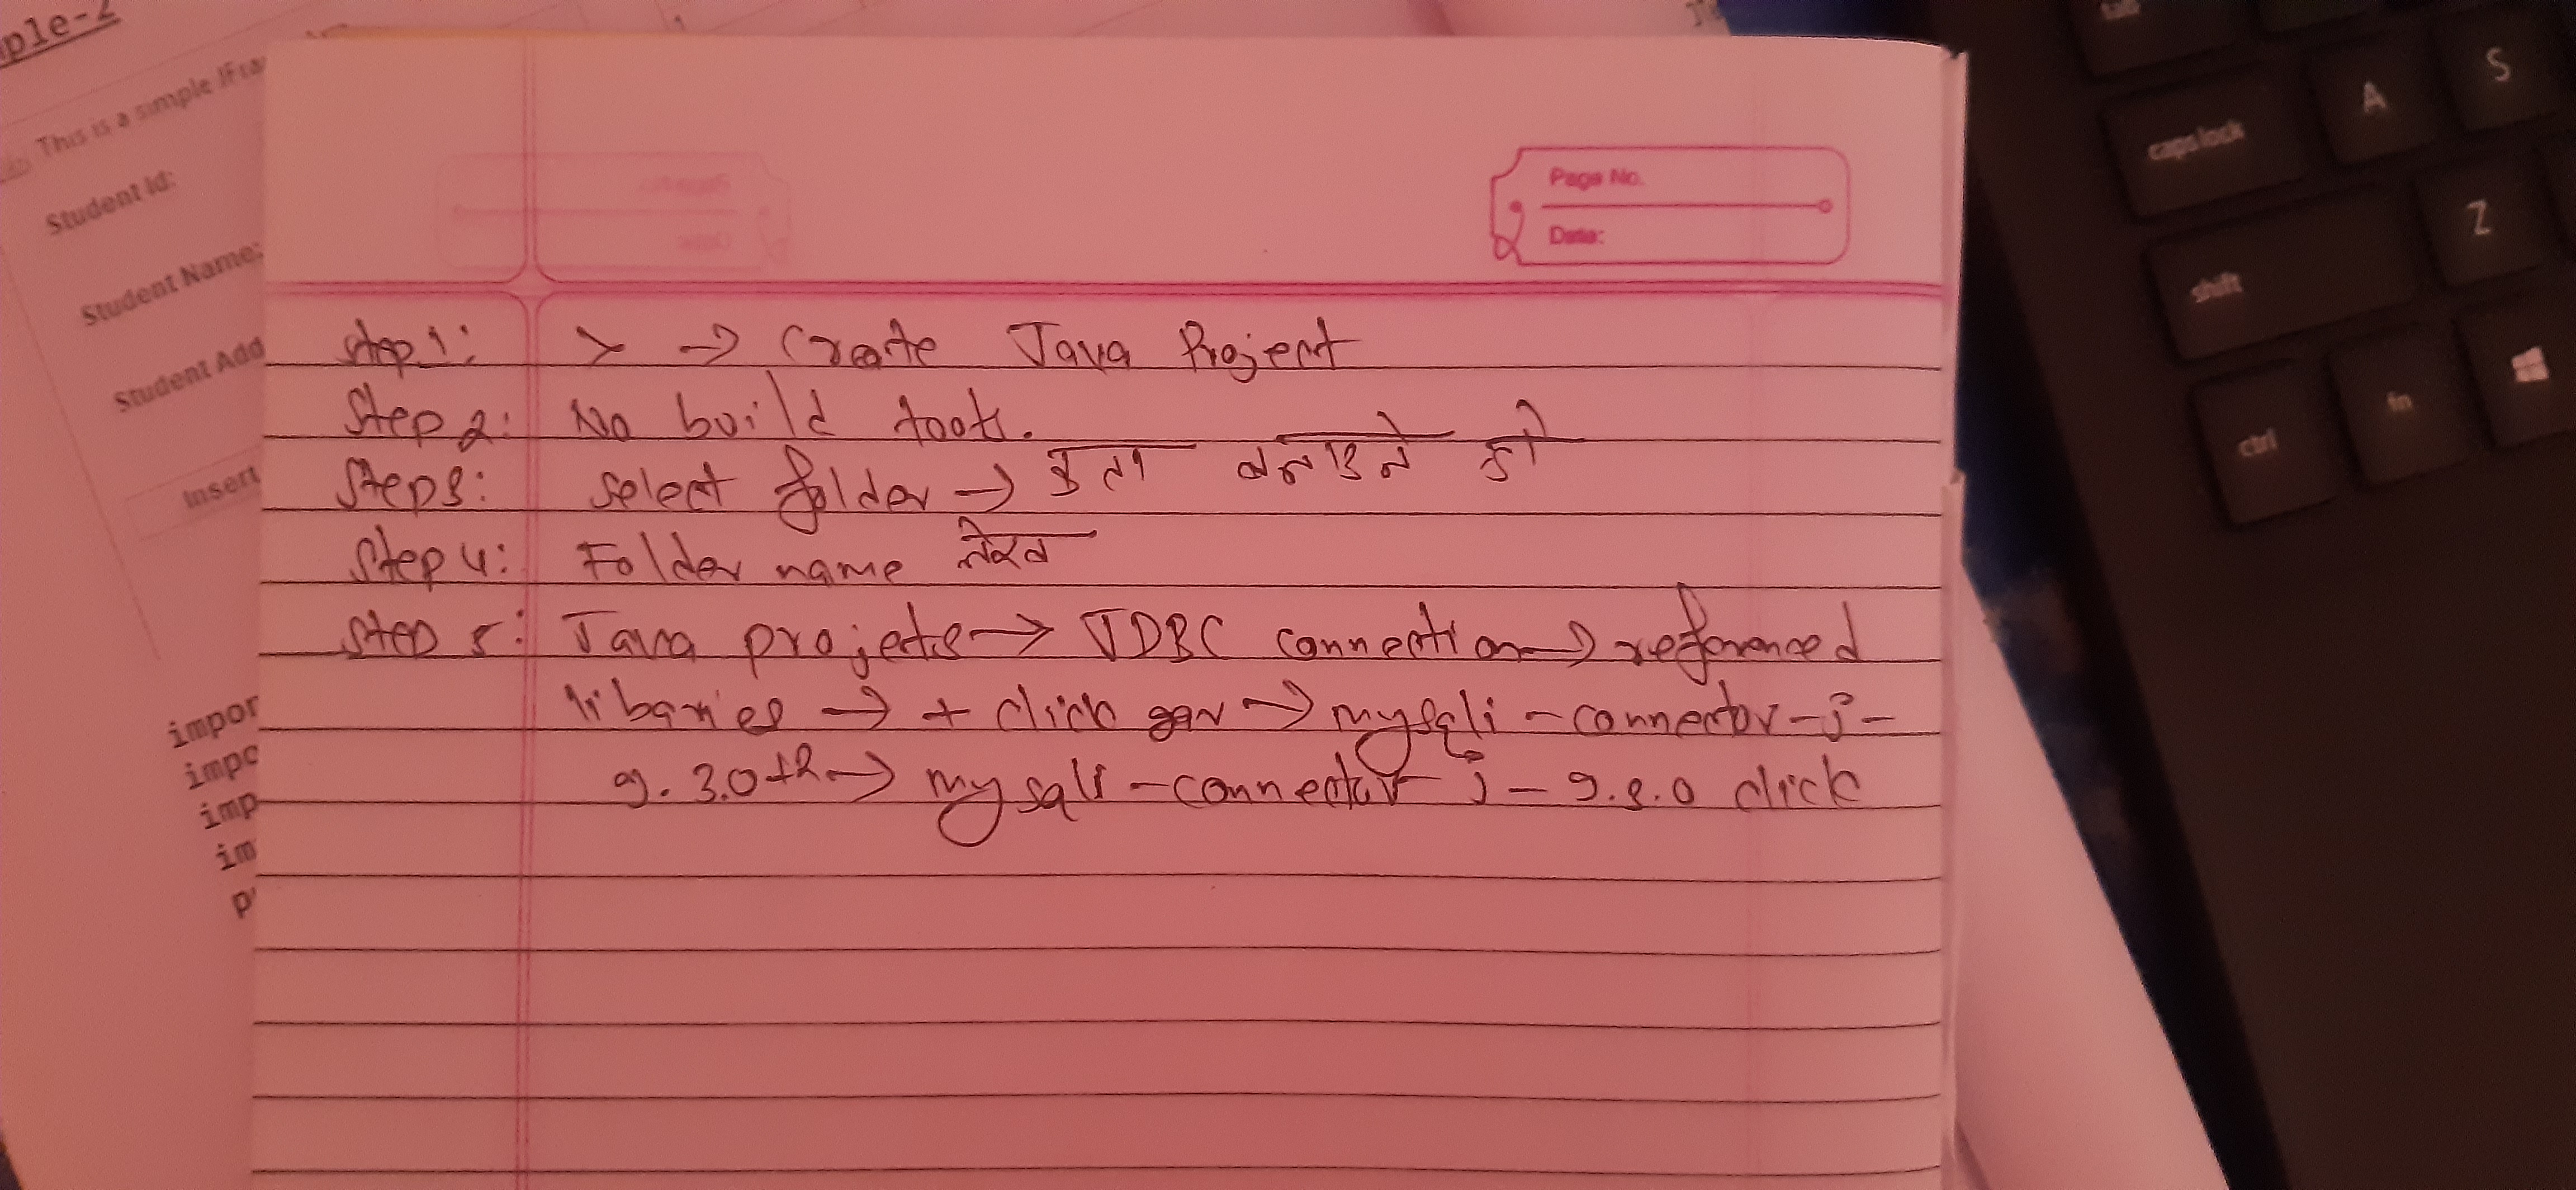 ple-2
This is a simple
Student Id:
Student Name:
Student Add
Insert
impor
impo
imp
im
p
Page No.
Date:
Step 1: > → Create Java Project
Step 2: No build tools.
Step 3: select folder →
Step 4: Folder name
Step 5: Java projects → JDBC connection → referenced
libaries → + click → mysqli - connector - j -
9.3.0 → mysqli - connector - j - 9.3.0 click
tab
caps lock
shift
ctrl
fn
A
S
Z